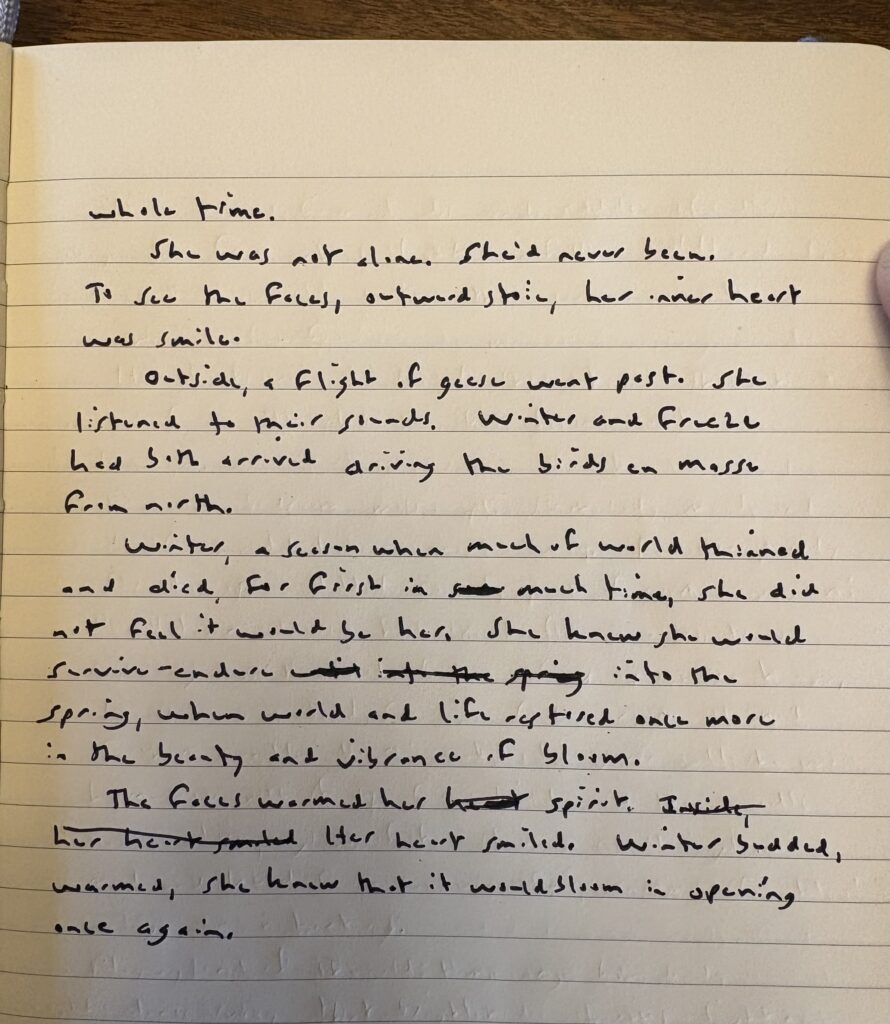 whole time.
She was not alone. She'd never been.
To see the faces, outward stoic, her inner heart
was smile.
Outside, a flight of geese went past. She
listened to their sounds. Winter and freeze
had both arrived driving the birds en masse
from north.
Winter, a season when much of world thinned
and died, for first in much time, she did
not feel it would be her. She knew she would
survive-endure into the
spring, when world and life restored once more
in the beauty and vibrance of bloom.
The faces warmed her heart spirit. Inside,
her heart smiled Her heart smiled. Winter budded,
warmed, she knew that it would bloom in opening
once again.